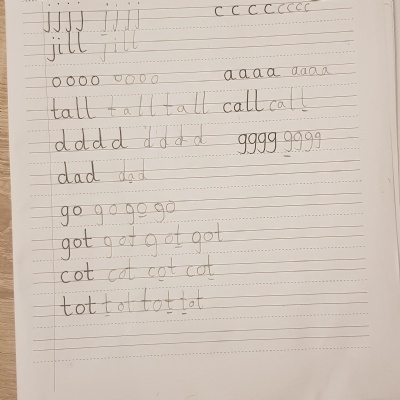 jjjj jjjj cccc cccc
jill jill
oooo oooo aaaa aaaa
tall tall tall call call
dddd dddd gggg gggg
dad dad
go go go go
got got got got
cot cot cot cot
tot tot tot tot